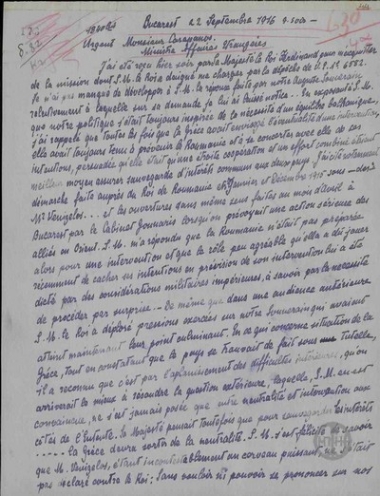 Bucarest 22 Septembre 1916 4 soir
Urgent Monsieur Carapanos
Ministre Affaires Etrangères
J'ai été reçu hier soir par Sa Majesté le Roi Ferdinand pour m'acquitter
de la mission dont S.M. le Roi a daigné me charger par la dépêche de V.E. 6882.
Je n'ai pas manqué de développer à S.M. la réponse faite par notre Auguste Souverain
relativement à laquelle sur sa demande je lui ai laissé notice. En
que notre politique s'était toujours inspirée de la nécessité d'un équilibre balkanique,
j'ai rappelé que toutes les fois que la Grèce avait envisagé l'éventualité d'une intervention,
elle avait toujours tenu à prévenir la Roumanie et à se concerter avec elle de ses
intentions, persuadée qu'elle était qu'une étroite coopération et un effort combiné étaient
meilleur moyen assurer sauvegarde d'intérêts communs aux deux pays. J'ai cité notamment
démarche faite auprès du Roi de Roumanie en Janvier et Décembre 1915 sous
Mr Venizelos et les ouvertures dans même sens faites au mois d'avril à
Bucarest par le Cabinet Gounaris lorsqu'on prévoyait une action sérieuse des
alliés en Orient. S.M. m'a répondu que la Roumanie n'était pas préparée
alors pour une intervention et que le rôle peu agréable qu'elle a dû jouer
récemment de cacher ses intentions en prévision de son intervention lui a été
dicté par des considérations militaires impérieuses, à savoir par la nécessité
de procéder par surprise. De même que dans une audience antérieure
S.M. le Roi a déploré pressions exercées sur notre Souverain qui avaient
atteint maintenant leur point culminant. En ce qui concerne situation de la
Grèce, tout en constatant que le pays se trouvait de fait sous tutelle,
il a reconnu que c'est par l'aplanissement des difficultés intérieures, qu'on
arriverait le mieux à résoudre la question extérieure, laquelle, S.M. en est
convaincue, ne s'est jamais posée que entre neutralité et intervention aux
côtés de l'Entente. Sa Majesté pensait toutefois que pour sauvegarder ses intérêts
la Grèce devra sortir de la neutralité. S.M. s'est félicité de savoir
que M. Venizelos, étant incontestablement un cerveau puissant, n'était
pas déclaré contre le Roi: Sans vouloir ni pouvoir se prononcer sur nos